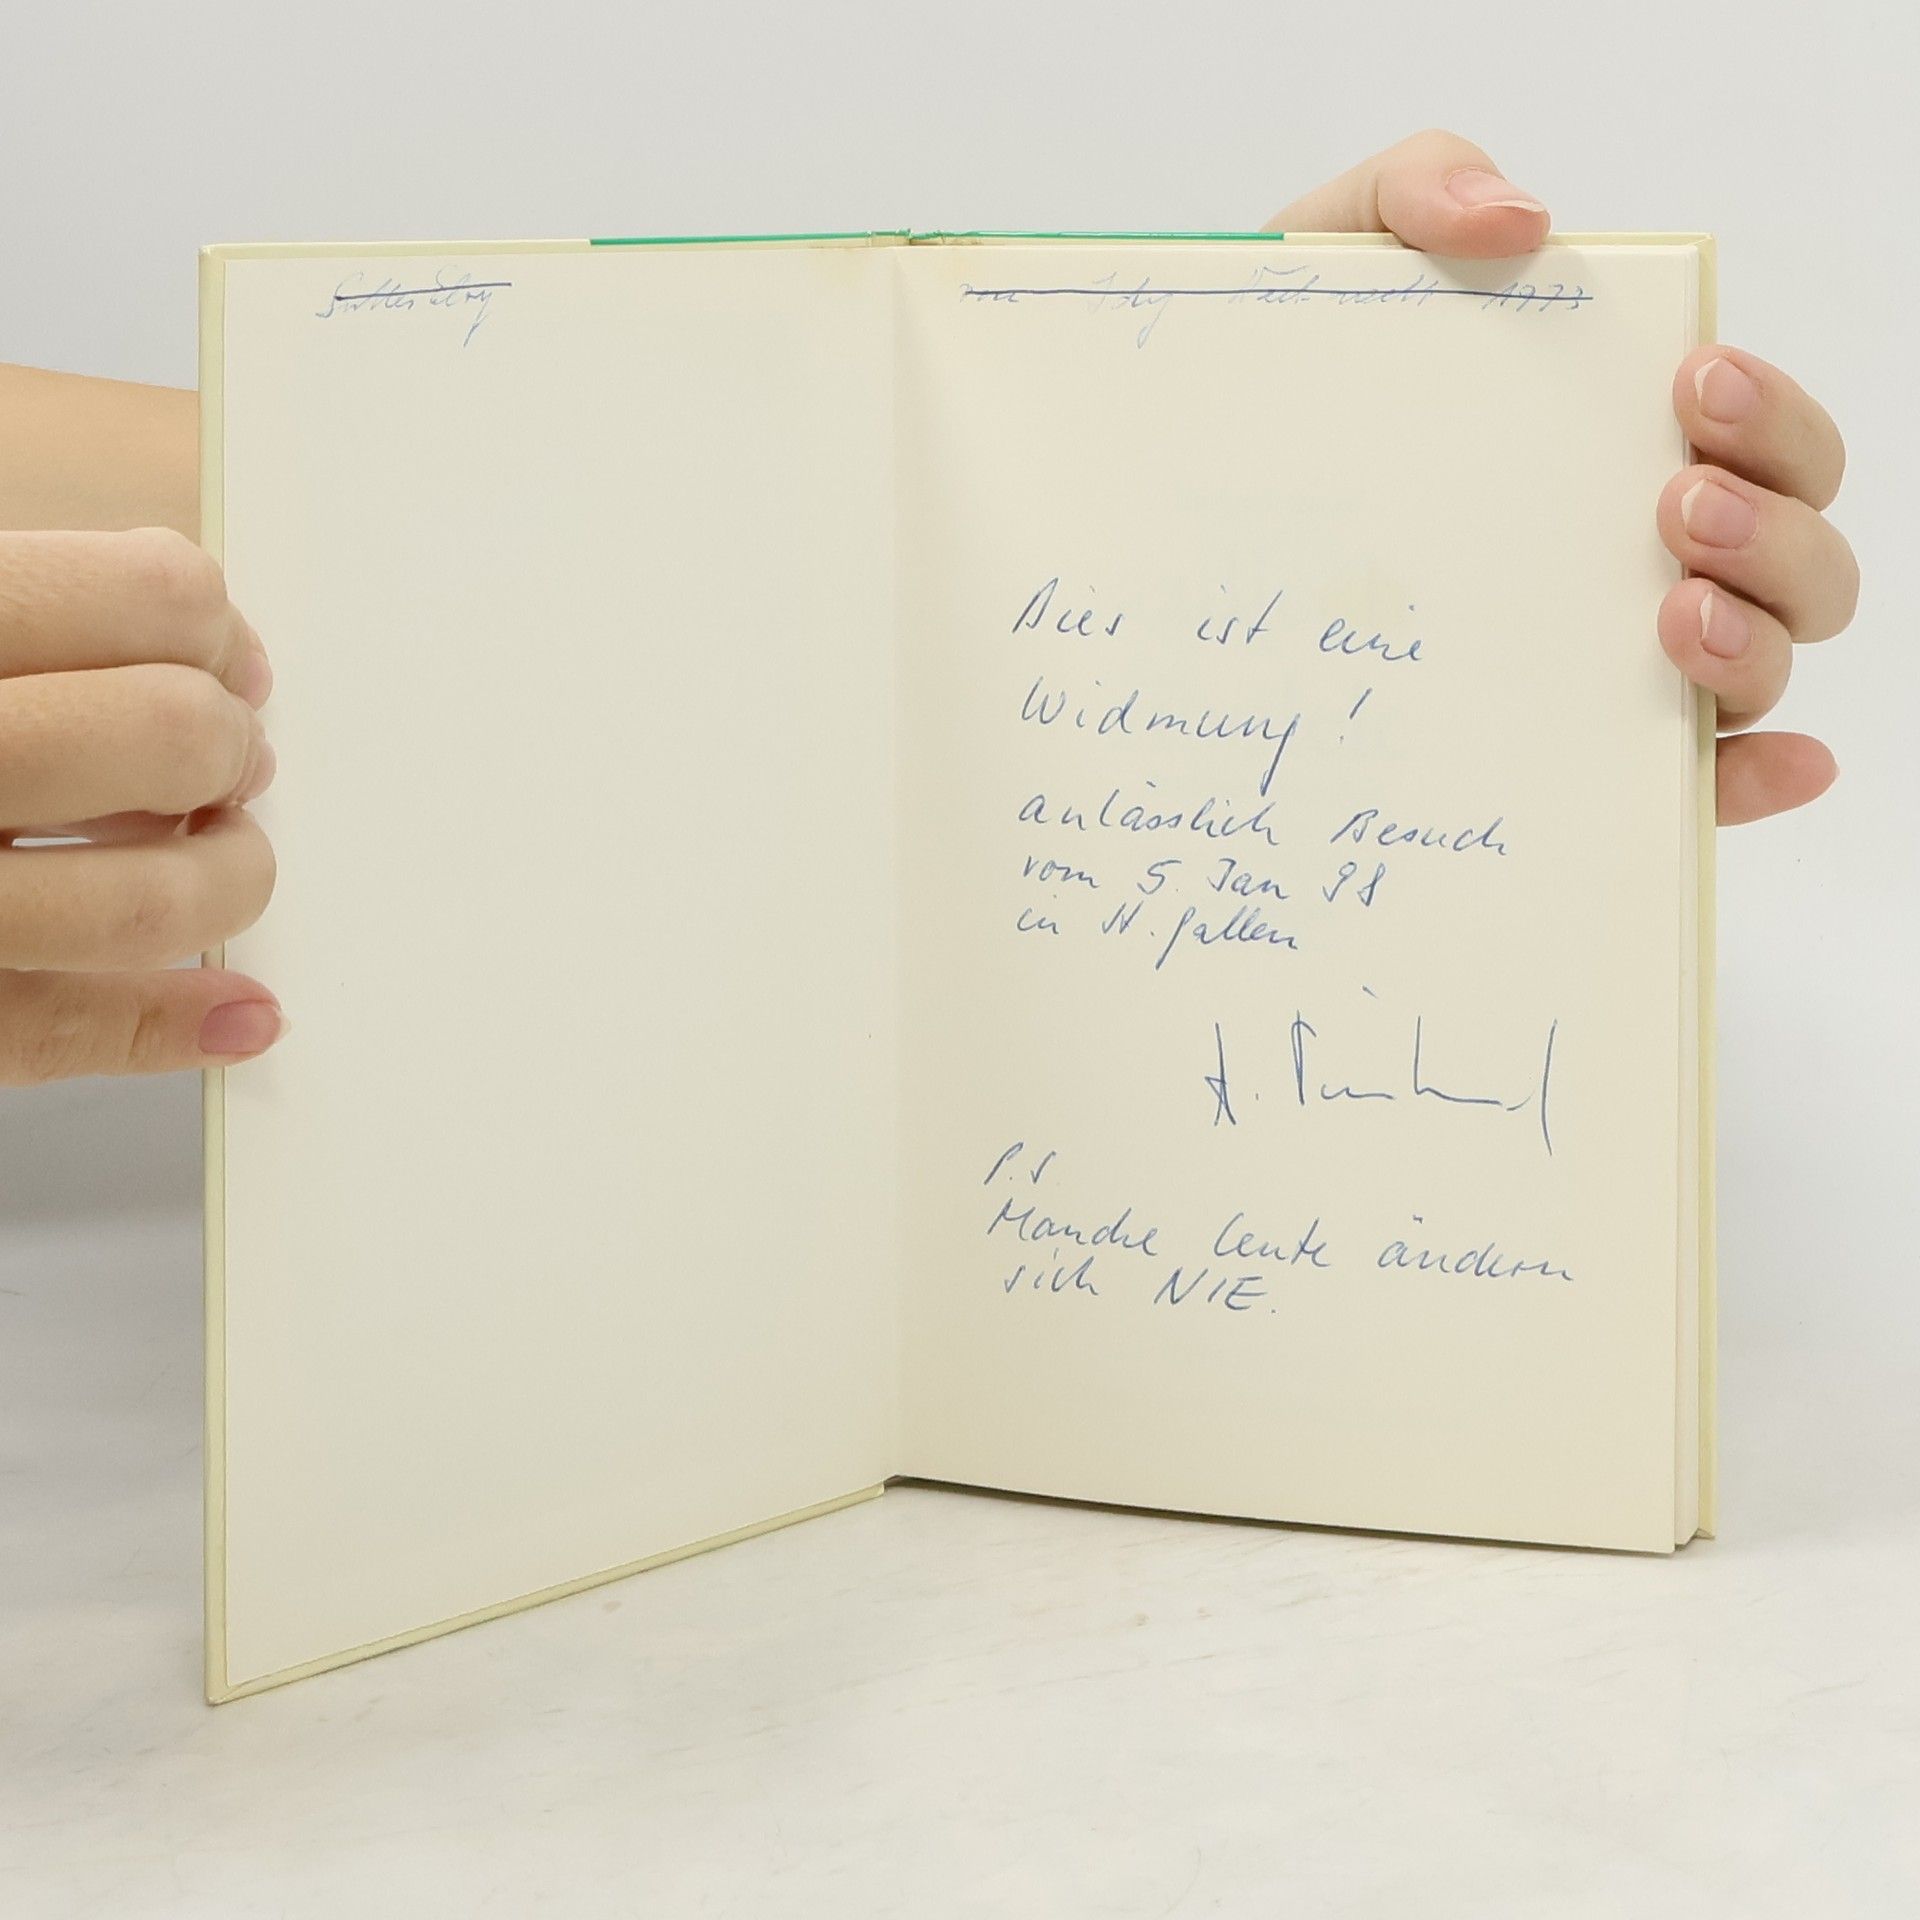 1973
Dies ist eine
Widmung!
anlässlich Besuch
vom 5. Jan 98
in St. Gallen
P.S.
Manche Leute ändern
sich NIE.